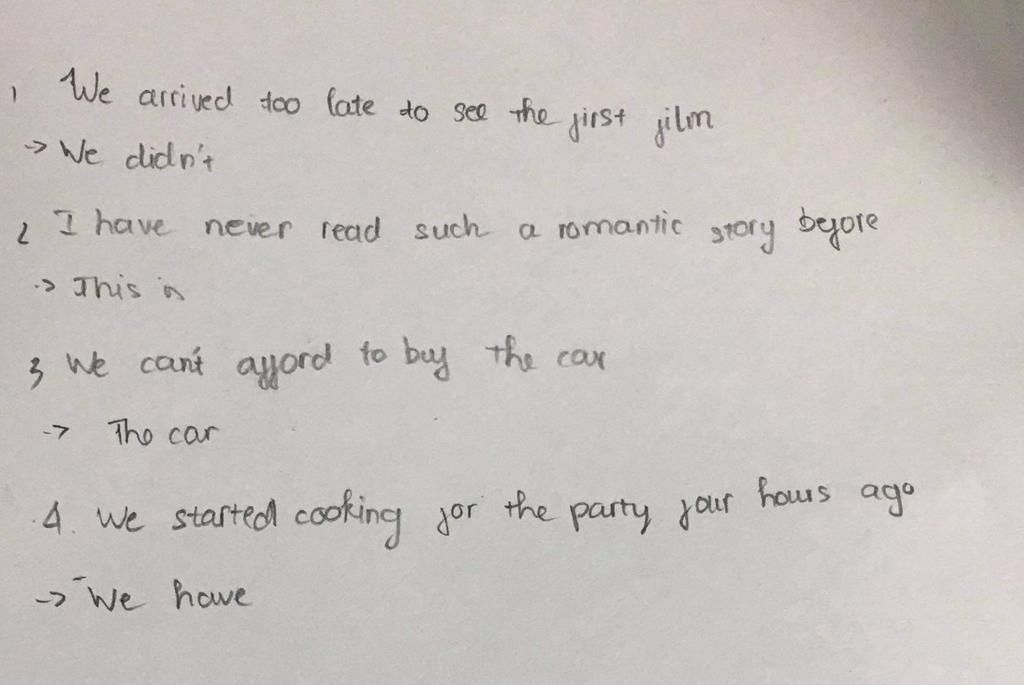 1 We arrived too late to see the first film
-> We didn't
2 I have never read such a romantic story before
-> This is
3 We can't afford to buy the car
-> The car
4. We started cooking for the party four hours ago
-> We have